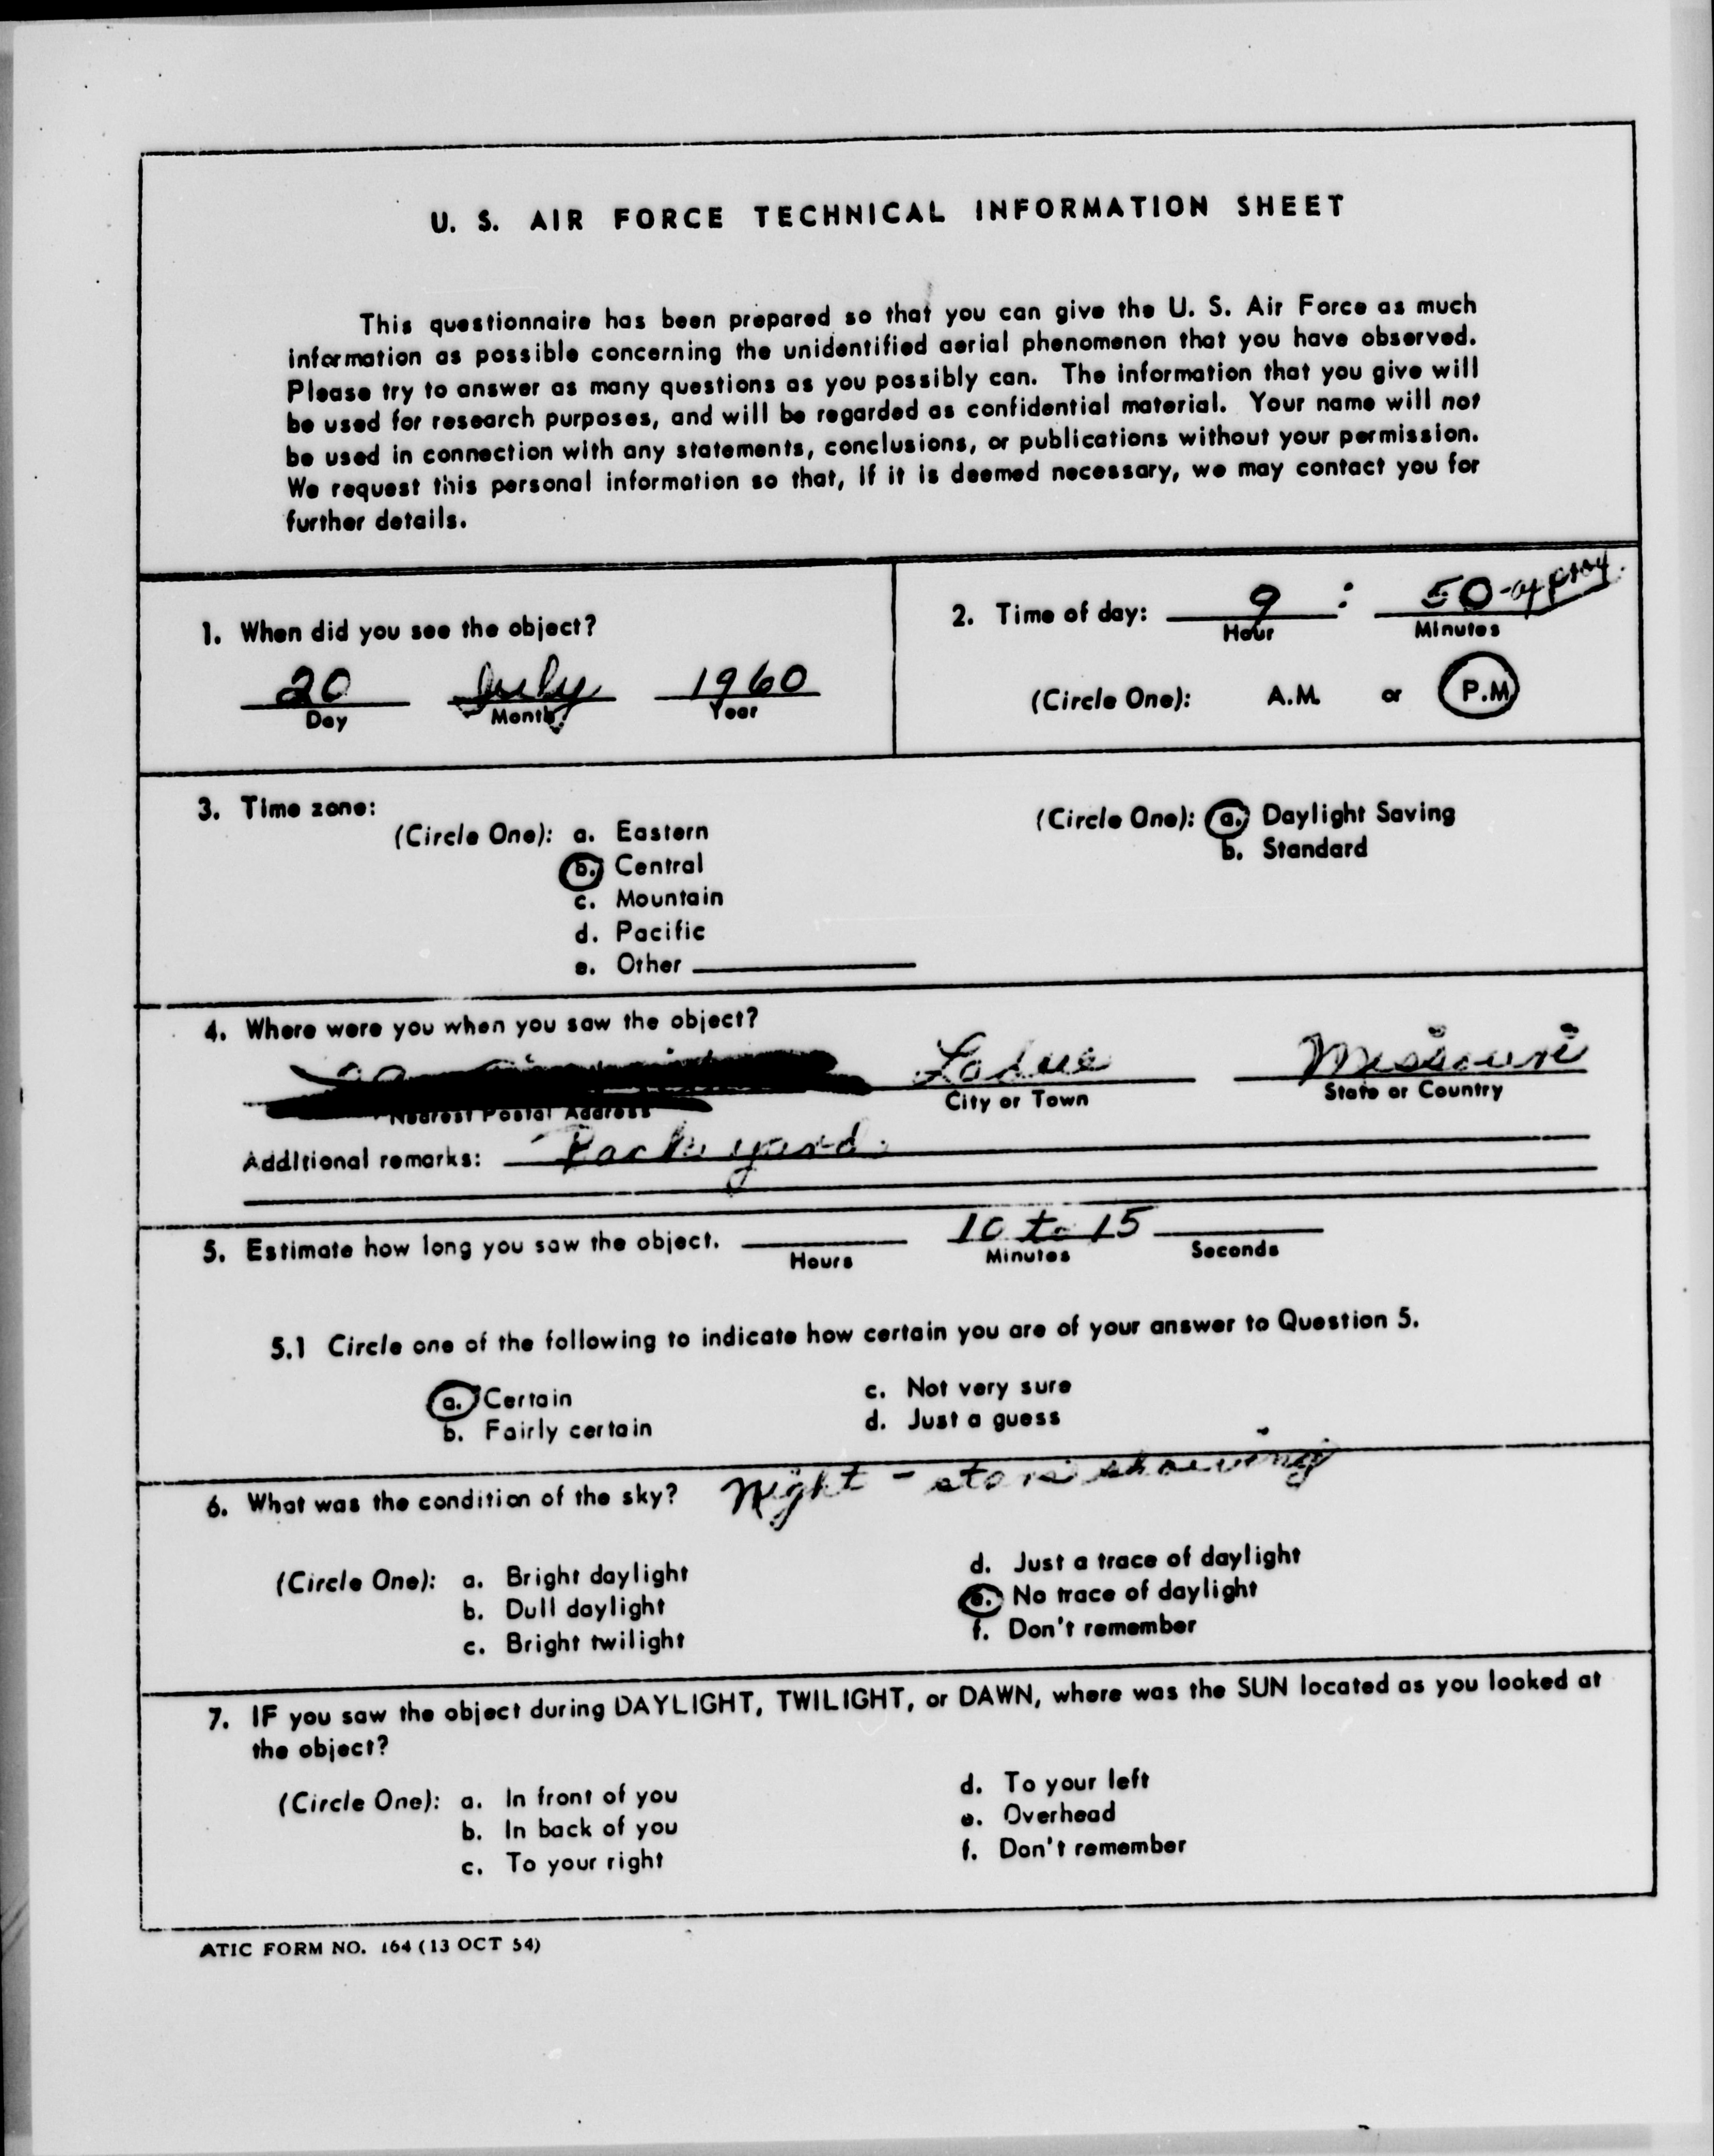 U. S. AIR FORCE TECHNICAL INFORMATION SHEET
This questionnaire has been prepared so that you can give the U. S. Air Force as much
information as possible concerning the unidentified aerial phenomenon that you have observed.
Please try to answer as many questions as you possibly can. The information that you give will
be used for research purposes, and will be regarded as confidential material. Your name will not
be used in connection with any statements, conclusions, or publications without your permission.
We request this personal information so that, if it is deemed necessary, we may contact you for
further details.
1. When did you see the object?
20 July 1960
Day Month Year
2. Time of day: 9 : 50 - approx.
Hour Minutes
(Circle One): A.M. or P.M.
3. Time zone:
(Circle One): a. Eastern
b. Central
c. Mountain
d. Pacific
e. Other
(Circle One): a. Daylight Saving
b. Standard
4. Where were you when you saw the object?
Ladue Missouri
Nearest Postal Address City or Town State or Country
Additional remarks: Back yard.
5. Estimate how long you saw the object. 10 to 15
Hours Minutes Seconds
5.1 Circle one of the following to indicate how certain you are of your answer to Question 5.
a. Certain
b. Fairly certain
c. Not very sure
d. Just a guess
6. What was the condition of the sky? Night - stars showing
(Circle One): a. Bright daylight
b. Dull daylight
c. Bright twilight
d. Just a trace of daylight
e. No trace of daylight
f. Don't remember
7. IF you saw the object during DAYLIGHT, TWILIGHT, or DAWN, where was the SUN located as you looked at
the object?
(Circle One): a. In front of you
b. In back of you
c. To your right
d. To your left
e. Overhead
f. Don't remember
ATIC FORM NO. 164 (13 OCT 54)